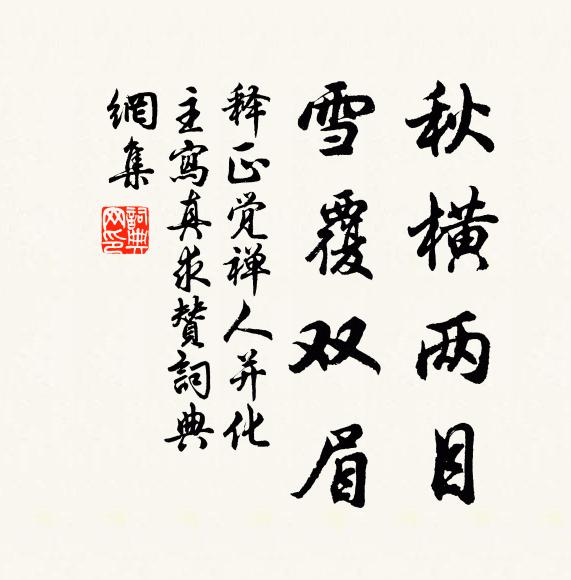 秋横两目
雪覆双眉
释正觉禅人并化
主寫真求贊詞典
網集
詞典网印